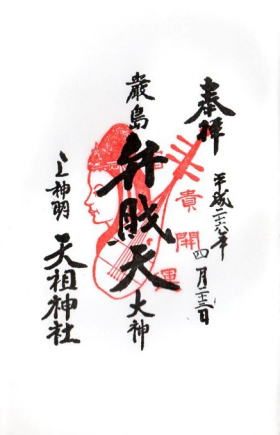 奉拝
平成二十六年
四月二十三日
厳島
弁財天
大神
上神明
天祖神社
貴
開
運